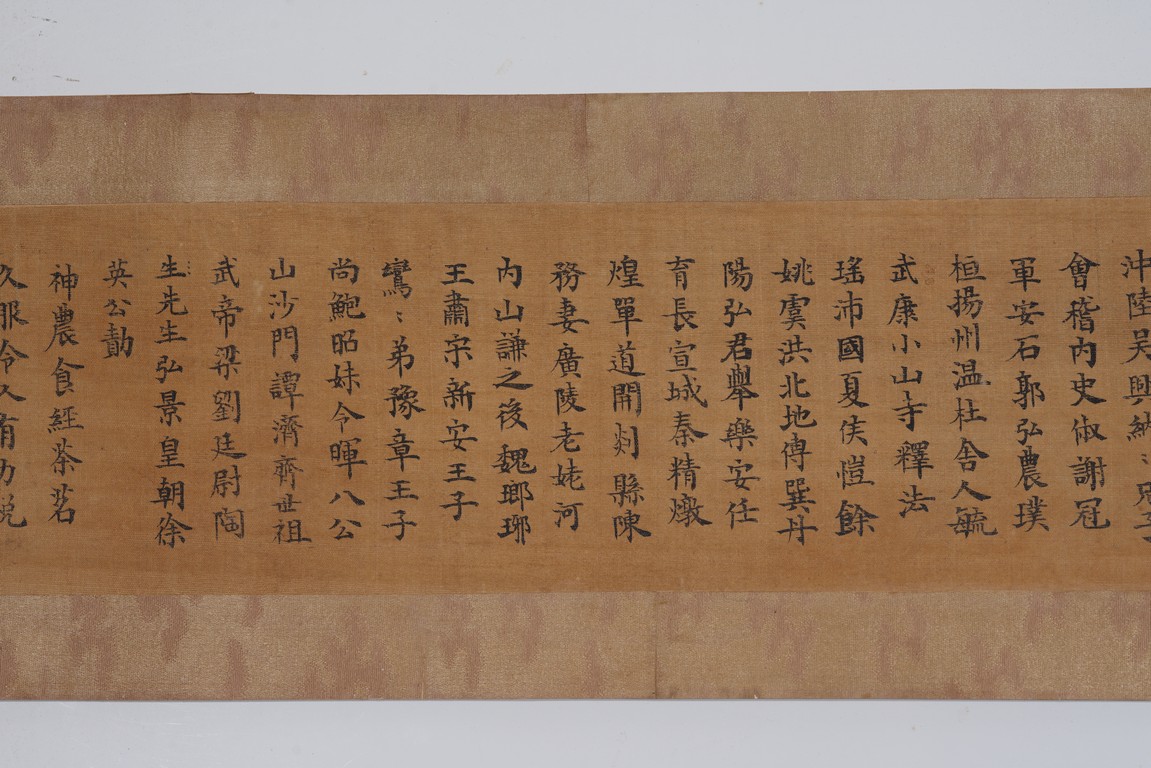 沖陸吳興納〻兄子
會稽内史俶謝冠
軍安石郭弘農璞
桓揚州温杜舍人毓
武康小山寺釋法
瑤沛國夏侯愷餘
姚虞洪北地傅巽丹
陽弘君舉樂安任
育長宣城秦精燉
煌單道開剡縣陳
務妻廣陵老姥河
内山謙之後魏瑯琊
王肅宋新安王子
鸞〻弟豫章王子
尚鮑昭妹令暉八公
山沙門譚濟齊世祖
武帝梁劉廷尉陶
生先生弘景皇朝徐
英公勣
神農食經茶茗
久服令人有力悅